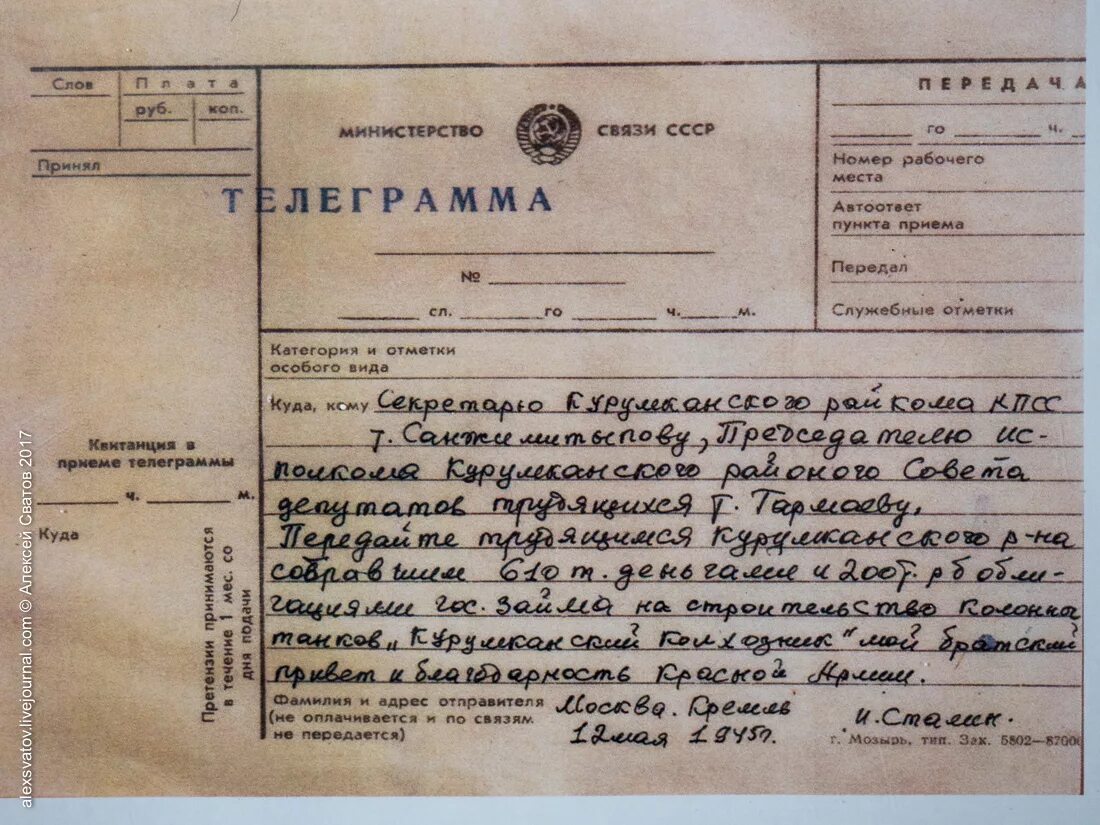 Слов
Плата
руб. коп.
Принял
МИНИСТЕРСТВО СВЯЗИ СССР
ТЕЛЕГРАММА
№
сл. го ч. м.
ПЕРЕДАЧА
го ч.
Номер рабочего
места
Автоответ
пункта приема
Передал
Служебные отметки
Категория и отметки
особого вида
Куда, кому Секретарю Курумканского райкома КПСС
т. Санжимитыпову, Председателю ис-
полкома Курумканского районого Совета
депутатов трудящихся т. Тармаеву.
Передайте трудящимся Курумканского р-на
собравшим 610 т. деньгами и 200 т. рб обли-
гациями гос. займа на строительство колонны
танков „Курумканский колхозник" мой братский
привет и благодарность Красной Армии.
Фамилия и адрес отправителя
(не оплачивается и по связям
не передается)
Москва. Кремль И. Сталин.
12 мая 1945г.
г. Мозырь, тип. Зак. 5802—87000
Квитанция в
приеме телеграммы
ч. м.
Куда
Претензии принимаются
в течение 1 мес. со
дня подачи
alexsvatov.livejournal.com © Алексей Сватов 2017